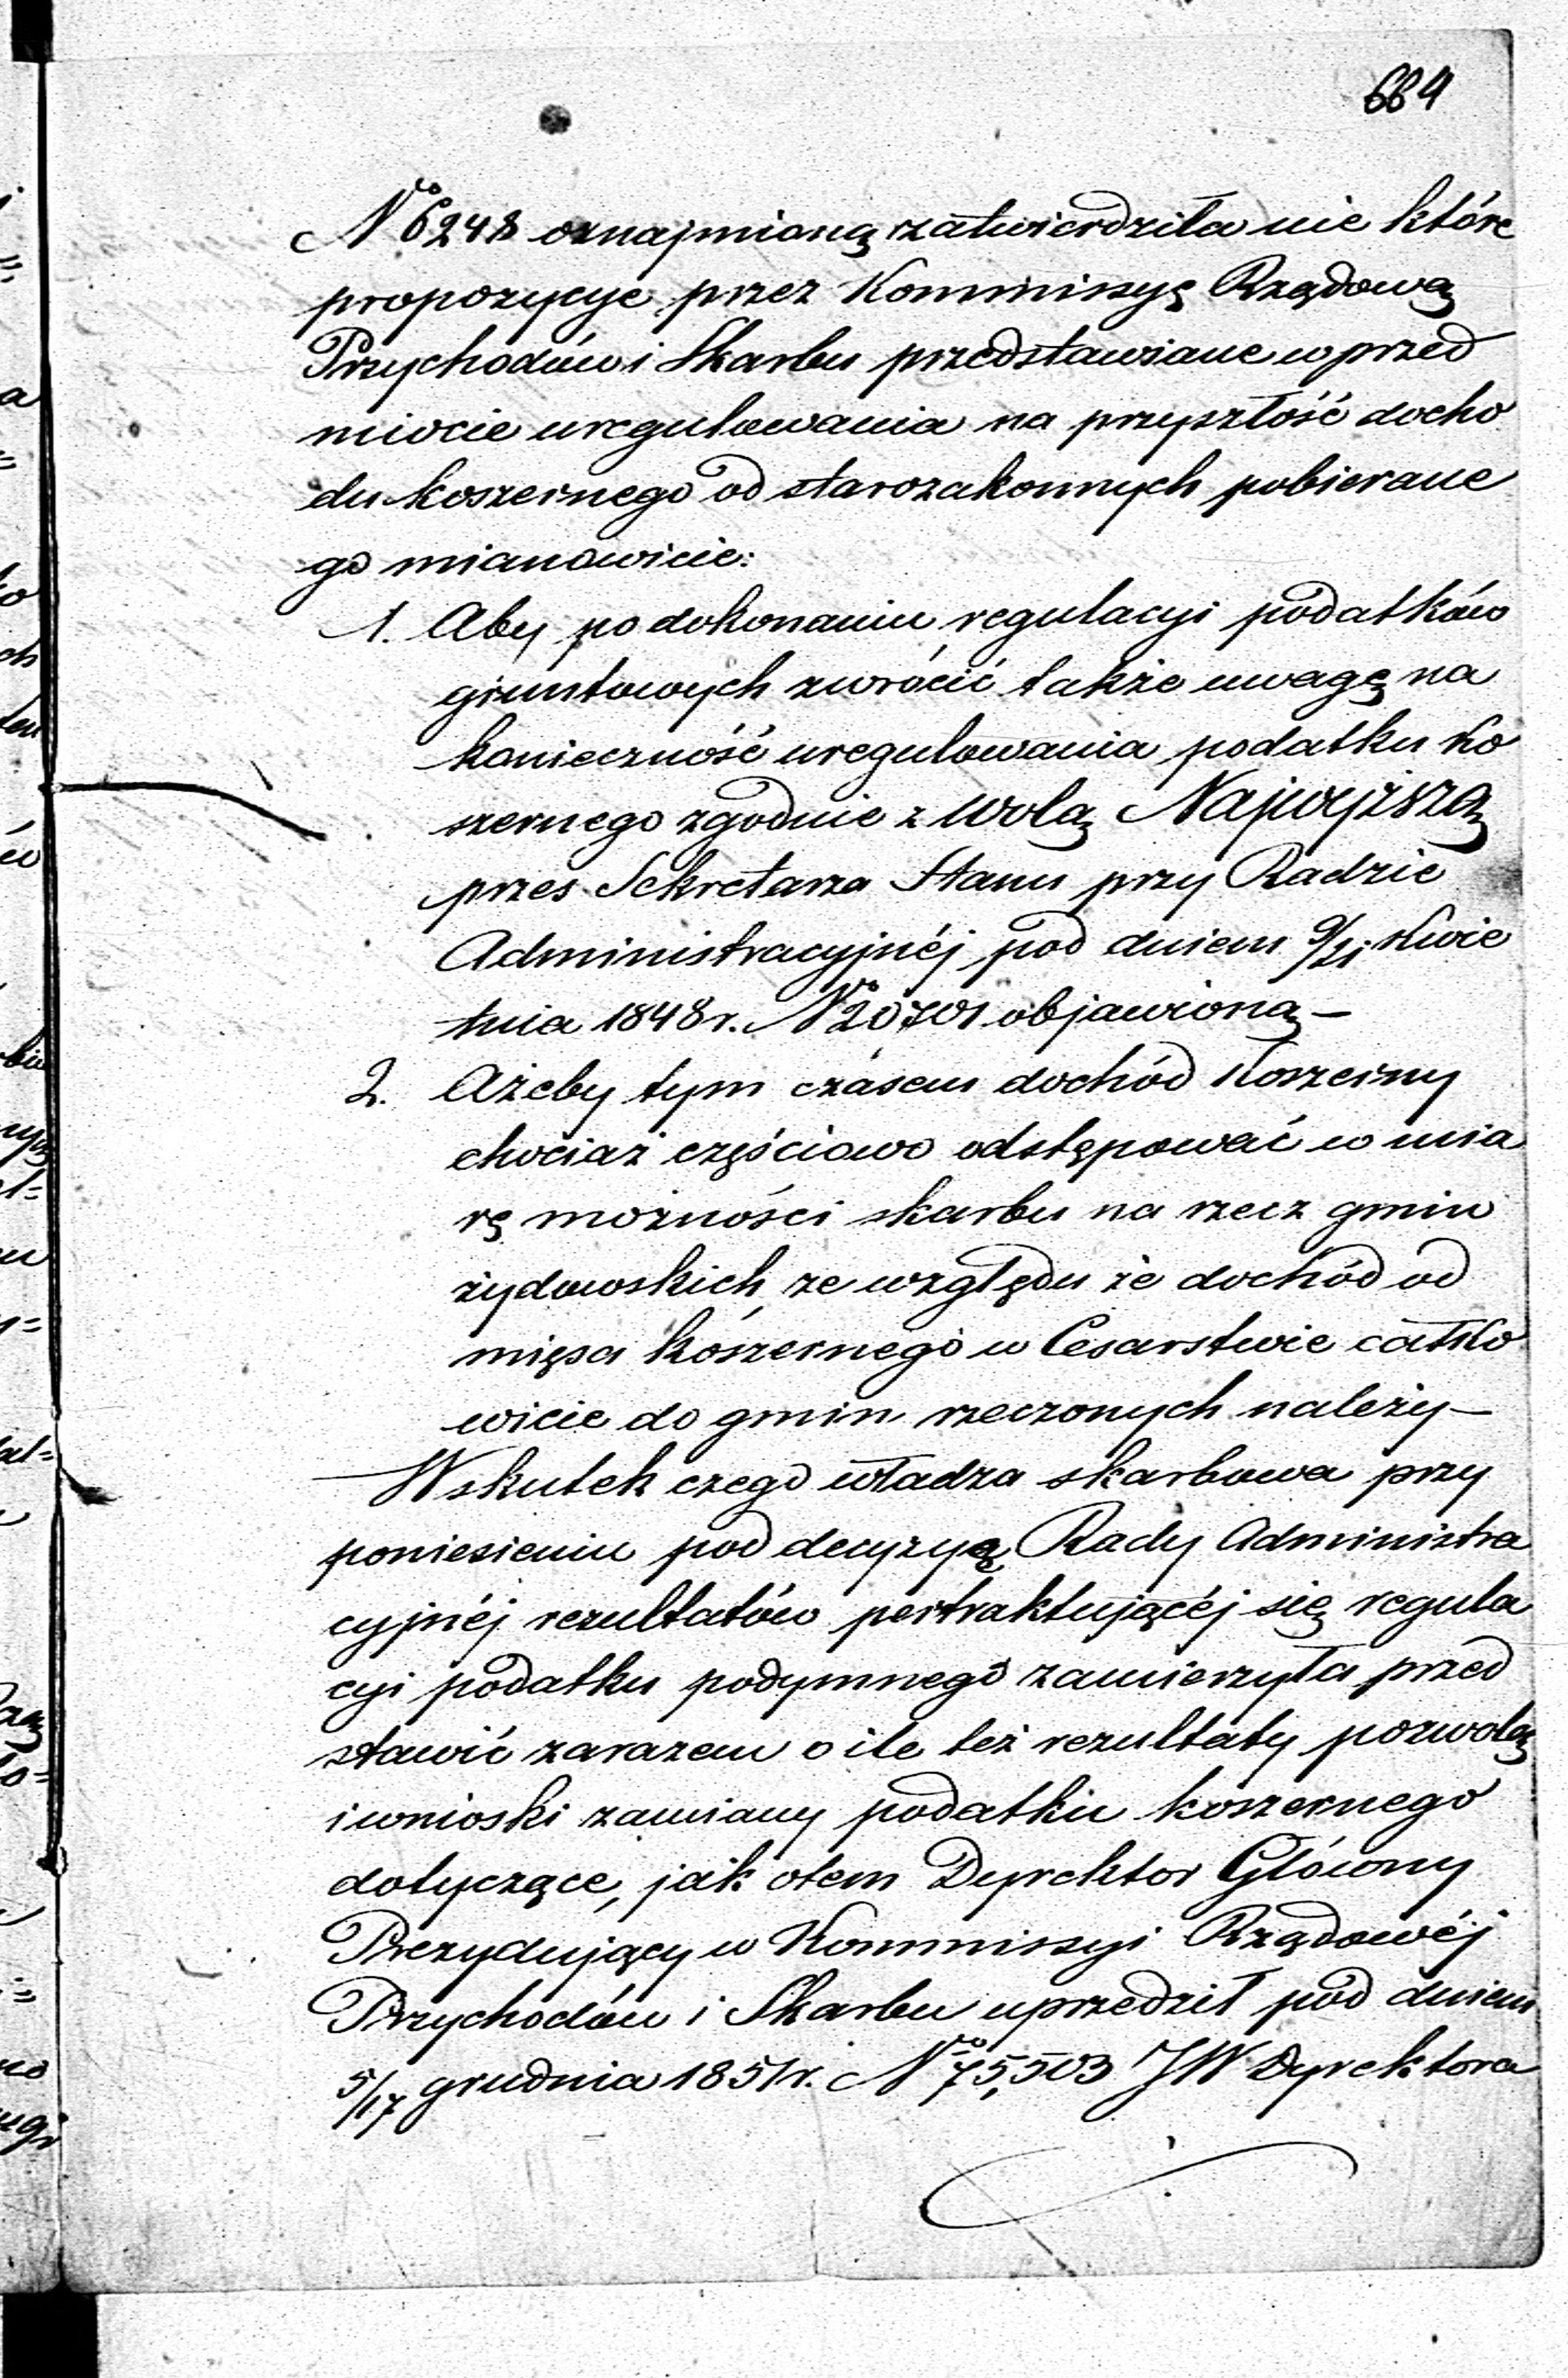 664
No 6248 oznajmioną zatwierdziła nie które
propozycye przez Kommissyę Rządową
Przychodów i Skarbu przedstawiane w przed
miocie uregulowania na przyszłość docho
du koszernego od starozakonnych pobierane
go mianowicie:
1. Aby po dokonaniu regulacyi podatków
gruntowych zwrócić także uwagę na
konieczność uregulowania podatku ko
szernego zgodnie z Wolą Najwyższą
przes Sekretarza Stanu przy Radzie
Administracyjnéj pod dniem 9/21 Kwie
tnia 1848 r. No 20701 objawioną —
2. Ażeby tym czasem dochód koszerny
chociaż częściowo odstępować w mia
rę możności skarbu na rzecz gmin
żydowskich, ze względu że dochód od
mięsa koszernego w Cesarstwie całko
wicie do gmin rzeczonych należy —
Wskutek czego władza skarbowa przy
poniesieniu pod decyzyą Rady Administra
cyjnéj rezultatów pertraktującéj się regula
cyi podatku podymnego zamierzyła przed
stawić zarazem o ile też rezultaty pozwolą
i wnioski zamiany podatku koszernego
dotyczące, jak otem Dyrektor Główny
Prezydujący w Kommissyi Rządowéj
Przychodów i Skarbu uprzedził pod dniem
5/17 grudnia 1851 r. No 75,503 JW Dyrektora